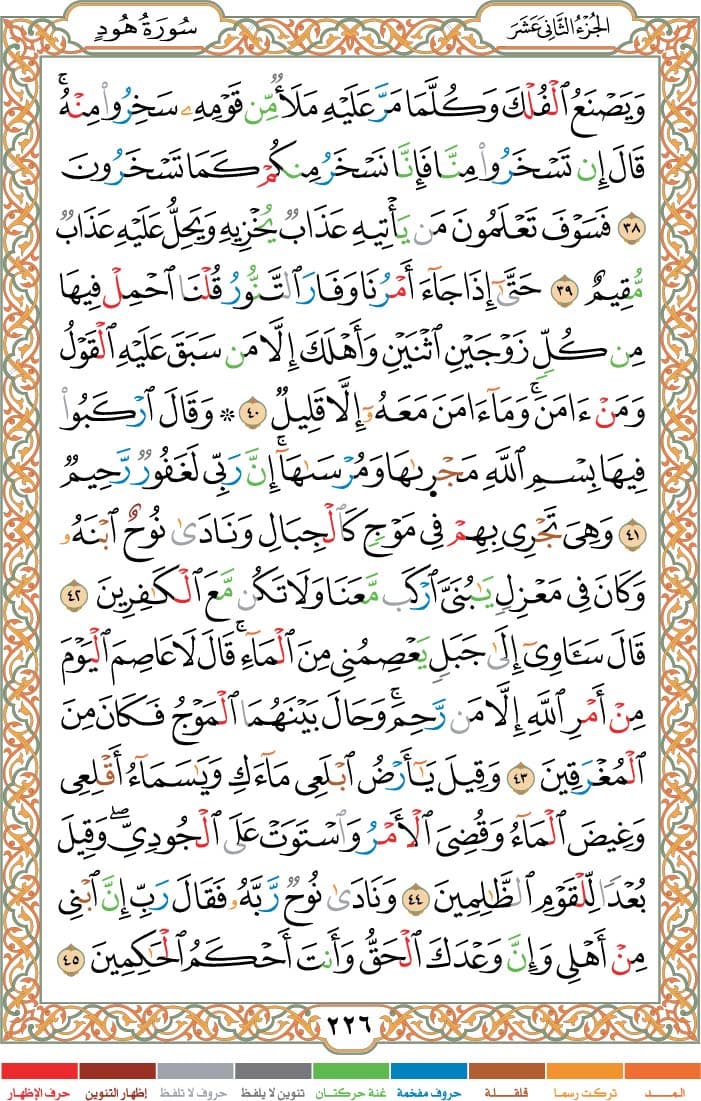 الجُزْءُ الثَّانِى عَشَرَ
سُورَةُ هُودٍ
وَيَصْنَعُ ٱلْفُلْكَ وَكُلَّمَا مَرَّ عَلَيْهِ مَلَأٌ مِّن قَوْمِهِۦ سَخِرُوا۟ مِنْهُ ۚ
قَالَ إِن تَسْخَرُوا۟ مِنَّا فَإِنَّا نَسْخَرُ مِنكُمْ كَمَا تَسْخَرُونَ
٣٨ فَسَوْفَ تَعْلَمُونَ مَن يَأْتِيهِ عَذَابٌ يُخْزِيهِ وَيَحِلُّ عَلَيْهِ عَذَابٌ
مُّقِيمٌ ٣٩ حَتَّىٰٓ إِذَا جَآءَ أَمْرُنَا وَفَارَ ٱلتَّنُّورُ قُلْنَا ٱحْمِلْ فِيهَا
مِن كُلٍّ زَوْجَيْنِ ٱثْنَيْنِ وَأَهْلَكَ إِلَّا مَن سَبَقَ عَلَيْهِ ٱلْقَوْلُ
وَمَنْ ءَامَنَ ۚ وَمَآ ءَامَنَ مَعَهُۥٓ إِلَّا قَلِيلٌ ٤٠ ۞ وَقَالَ ٱرْكَبُوا۟
فِيهَا بِسْمِ ٱللَّهِ مَجْر۪ىٰهَا وَمُرْسَىٰهَآ ۚ إِنَّ رَبِّى لَغَفُورٌ رَّحِيمٌ
٤١ وَهِىَ تَجْرِى بِهِمْ فِى مَوْجٍ كَٱلْجِبَالِ وَنَادَىٰ نُوحٌ ٱبْنَهُۥ
وَكَانَ فِى مَعْزِلٍ يَٰبُنَىَّ ٱرْكَب مَّعَنَا وَلَا تَكُن مَّعَ ٱلْكَٰفِرِينَ ٤٢
قَالَ سَـَٔاوِىٓ إِلَىٰ جَبَلٍ يَعْصِمُنِى مِنَ ٱلْمَآءِ ۚ قَالَ لَا عَاصِمَ ٱلْيَوْمَ
مِنْ أَمْرِ ٱللَّهِ إِلَّا مَن رَّحِمَ ۚ وَحَالَ بَيْنَهُمَا ٱلْمَوْجُ فَكَانَ مِنَ
ٱلْمُغْرَقِينَ ٤٣ وَقِيلَ يَٰٓأَرْضُ ٱبْلَعِى مَآءَكِ وَيَٰسَمَآءُ أَقْلِعِى
وَغِيضَ ٱلْمَآءُ وَقُضِىَ ٱلْأَمْرُ وَٱسْتَوَتْ عَلَى ٱلْجُودِىِّ ۖ وَقِيلَ
بُعْدًا لِّلْقَوْمِ ٱلظَّٰلِمِينَ ٤٤ وَنَادَىٰ نُوحٌ رَّبَّهُۥ فَقَالَ رَبِّ إِنَّ ٱبْنِى
مِنْ أَهْلِى وَإِنَّ وَعْدَكَ ٱلْحَقُّ وَأَنتَ أَحْكَمُ ٱلْحَٰكِمِينَ ٤٥
٢٢٦
المـــد تركت رسما قلقـلة حروف مفخمة غنة حركتان تنوين لا يلفظ حروف لا تلفظ إظهار التنوين حرف الإظهار